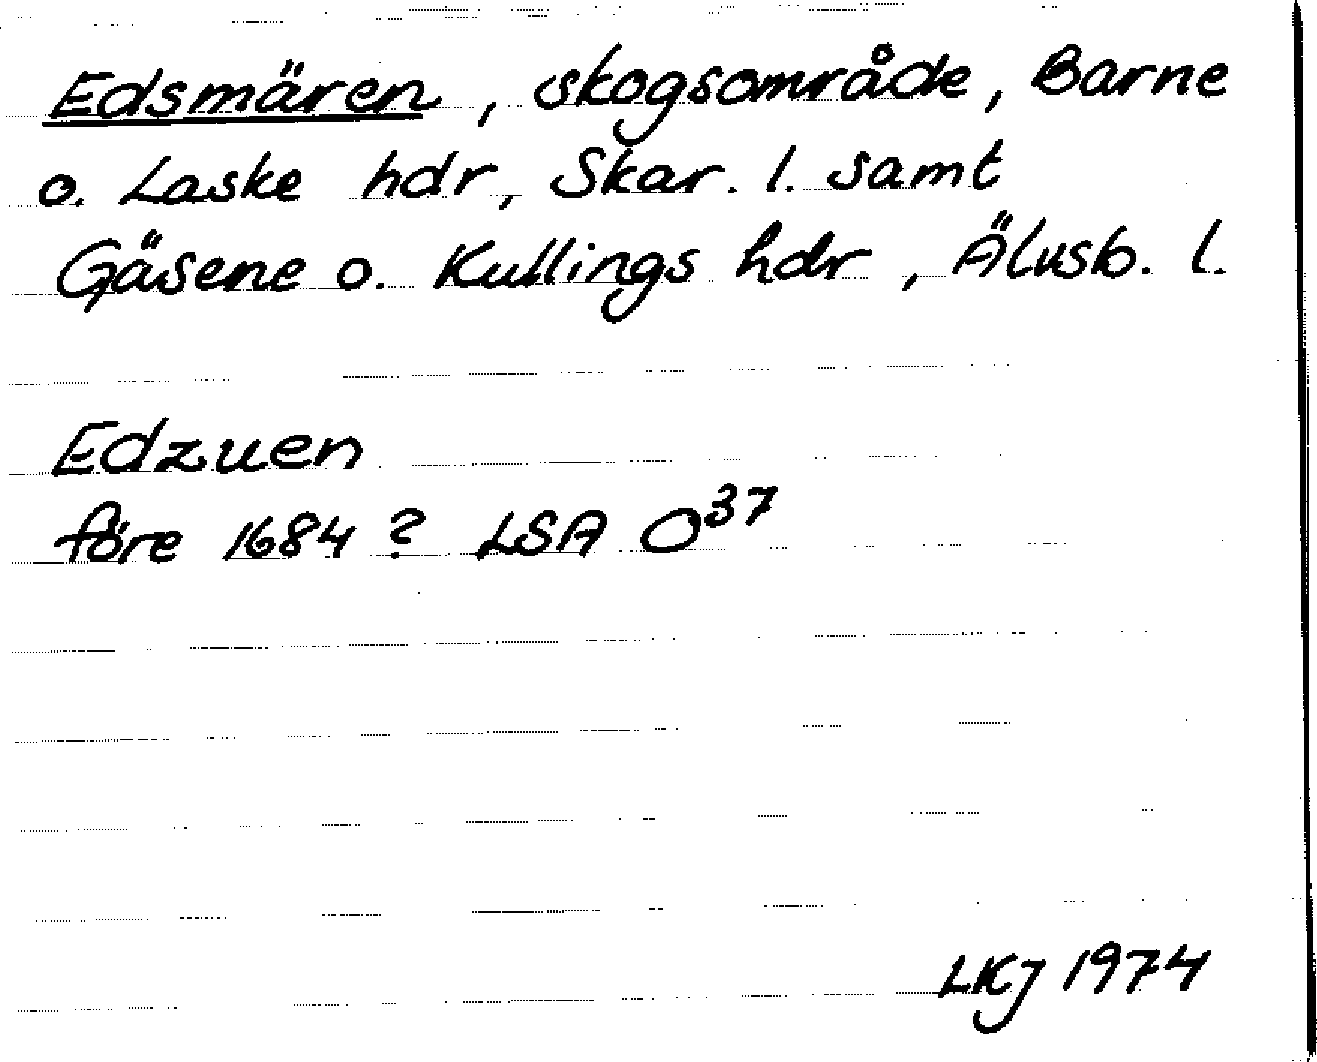 Edsmären, skogsområde, Barne
o. Laske hdr, Skar. l. samt
Gäsene o. Kullings hdr, Älvsb. l.
Edzuen
före 1684? LSA O³⁷
LKJ 1974